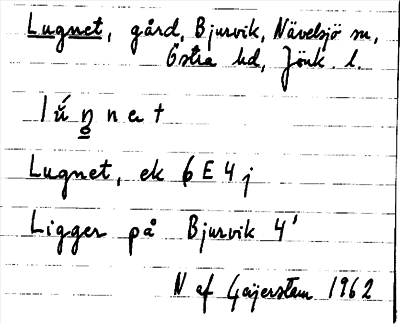 Lugnet, gård, Bjurvik, Nävelsjö sn,
Östra hd, Jönk. l.
lú̶ŋnet
Lugnet, ek 6E4j
Ligger på Bjurvik 4'
N af Geijerstam 1962